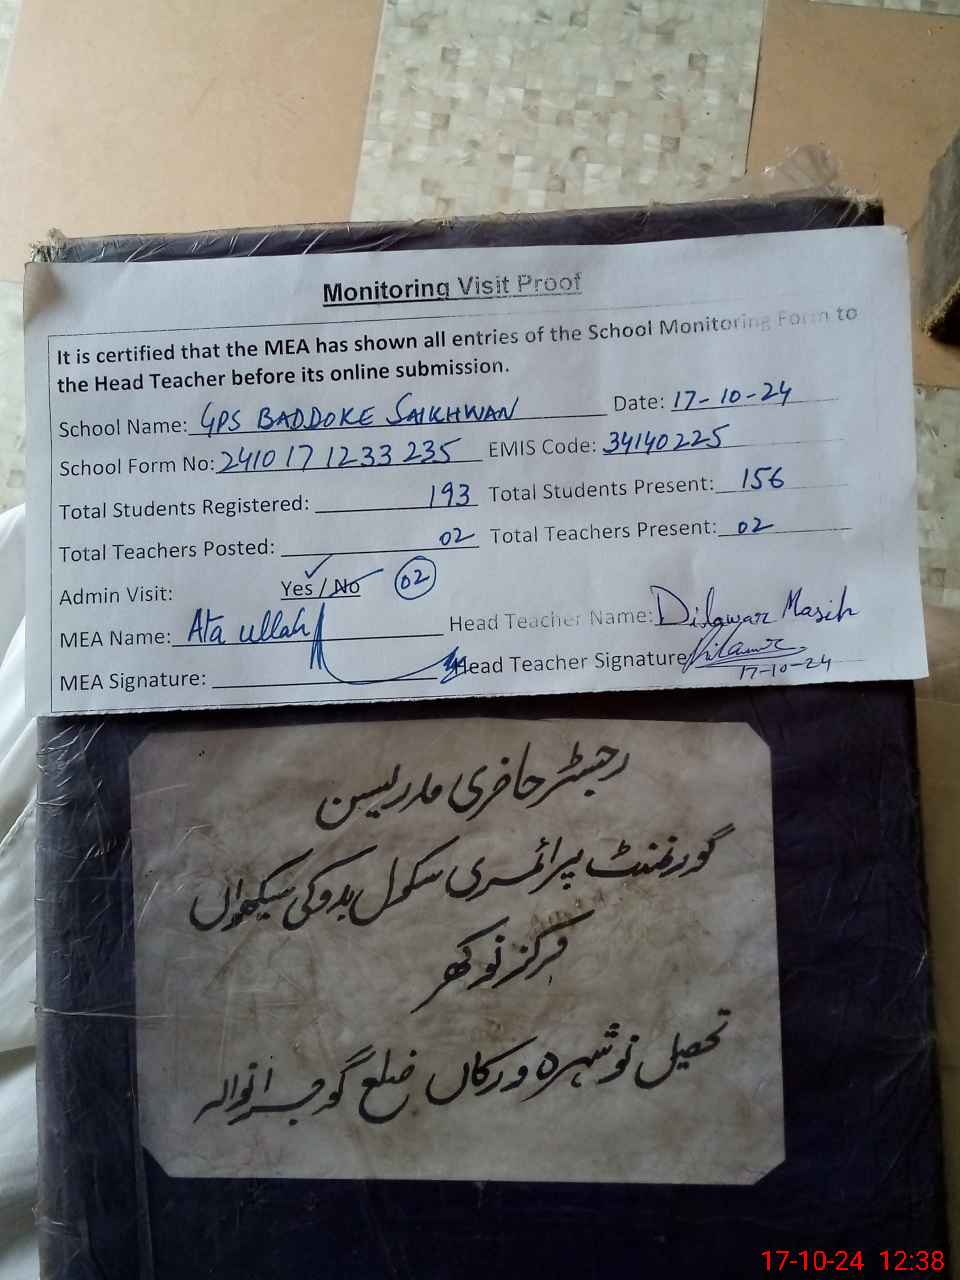 Monitoring Visit Proof
It is certified that the MEA has shown all entries of the School Monitoring Form to
the Head Teacher before its online submission.
School Name: GPS BADDOKE SAIKHWAN Date: 17-10-24
School Form No: 2410 17 1233 235 EMIS Code: 34140225
Total Students Registered: 193 Total Students Present: 156
Total Teachers Posted: 02 Total Teachers Present: 02
Admin Visit: Yes / No 02
MEA Name: Ata ullah Head Teacher Name: Dilawar Masih
MEA Signature: Head Teacher Signature Dilawar
17-10-24
رجسٹر حاضری مدریسن
گورنمنٹ پرائمری سکول بدوکی سیکھواں
مرکز نوکھر
تحصیل نوشہرہ ورکاں ضلع گوجرانوالہ
17-10-24 12:38